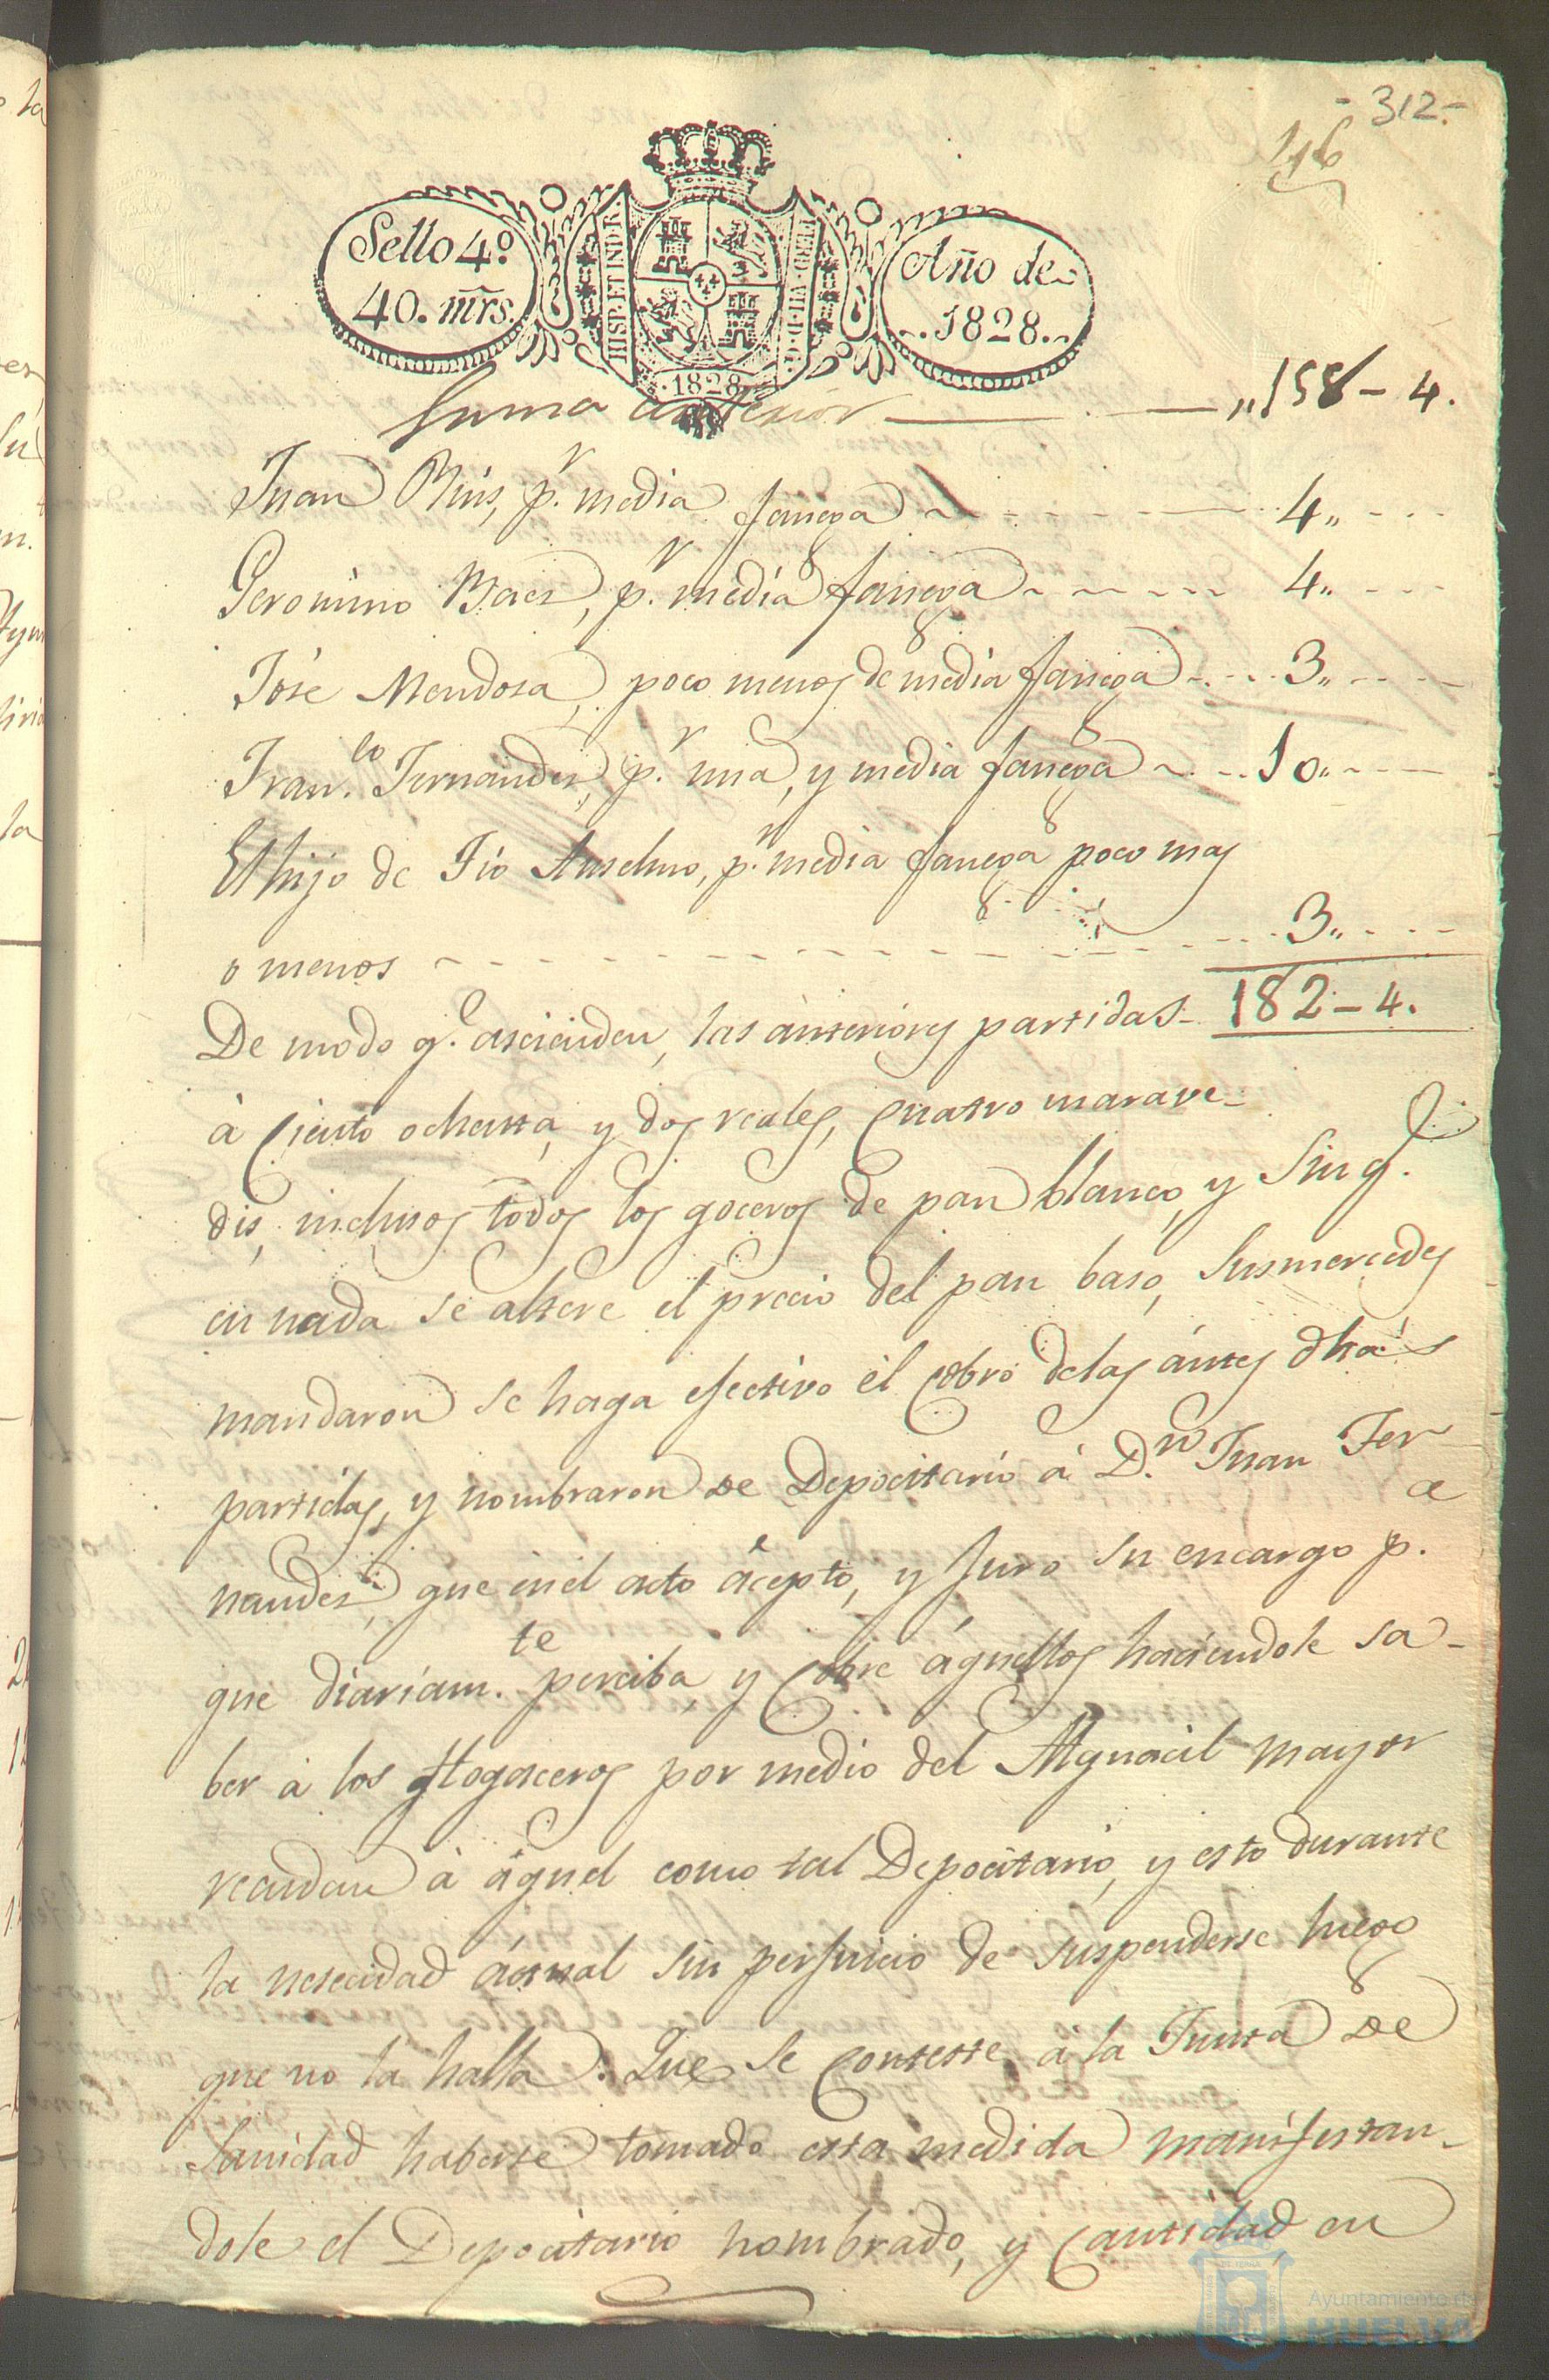 - 312 -
116
Sello 4º
40. mrs.
HISP. ET IND. R.
FERD. VII. D. G.
Año de
1828.
1828
Suma anterior „158 - 4.
Juan Ruis, p.r media fanega 4„
Geronimo Baes, p.r media fanega 4„
Jóse Mendosa, poco menos de media fanega 3„
Fran.co Fernandes, p.r una, y media fanega 10„
El hijo de Tio Anselmo, p.r media fanega poco mas
o menos 3„
De modo q.e ascienden, las anteriores partidas 182 - 4.
à Ciento ochenta, y dos reales, Cuatro marave-
dis, inclusos todos los goceros de pan blanco, y sin q.e
en nada se altere el precio del pan baso, Susmercedes
mandaron se haga efectivo él Cobro delas ántes dhas
partidas, y nombraron de Depocitario á D.n Juan Fer
nandes, que enel acto ácepto, y Juro su encargo p.a
que diariam.te perciba, y Cobre áquellos haciendole sa-
ber à los Hogaceros por medio del Alguacil mayor
reaudan à áquel como tal Depocitario, y esto durante
la nesecidad áctual sin perjuicio de suspenderse luego
que no la halla. Que se Conteste à la Junta de
Sanidad haberse tomado esta medida manifestan-
dole el Depocitario nombrado, y Cantidad en
Ayuntamiento de
HUELVA